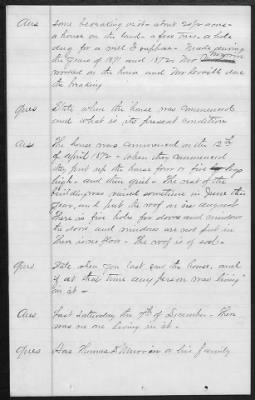 Ans some breaking visit - about 2 1/2 acres -
a house on the land - a few trees - a hole
dug for a well I suppose - Made during
the years of 1871 and 1872 - Mr
worked on the house and Mr did
the breaking
Ques State when the house was commenced
and what is its present condition
Ans The house was commenced on the 12th
of April 1872 - when they commenced
they put up the house four or five logs
high - and then quit - The rest of the
building was raised sometime in June that
year, and put the roof on in August
There is five holes for doors and windows
the doors and windows are not put in
There is no floor - The roof is of sod -
Ques State when you last saw the house, and
if at that time any person was living
in it -
Ans Last Saturday the 7th of December - There
was no one living in it -
Ques Has Thomas D. a his family